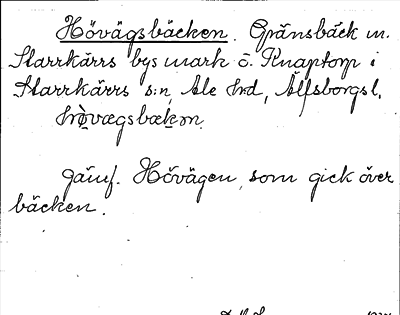 Hövägsbäcken. Gränsbäck m.
Starrkärrs bys mark o. Knaptorp i
Starrkärrs s:n, Ale hrd, Älfsborgs l.
Jämf. Hövägen, som gick över
bäcken.